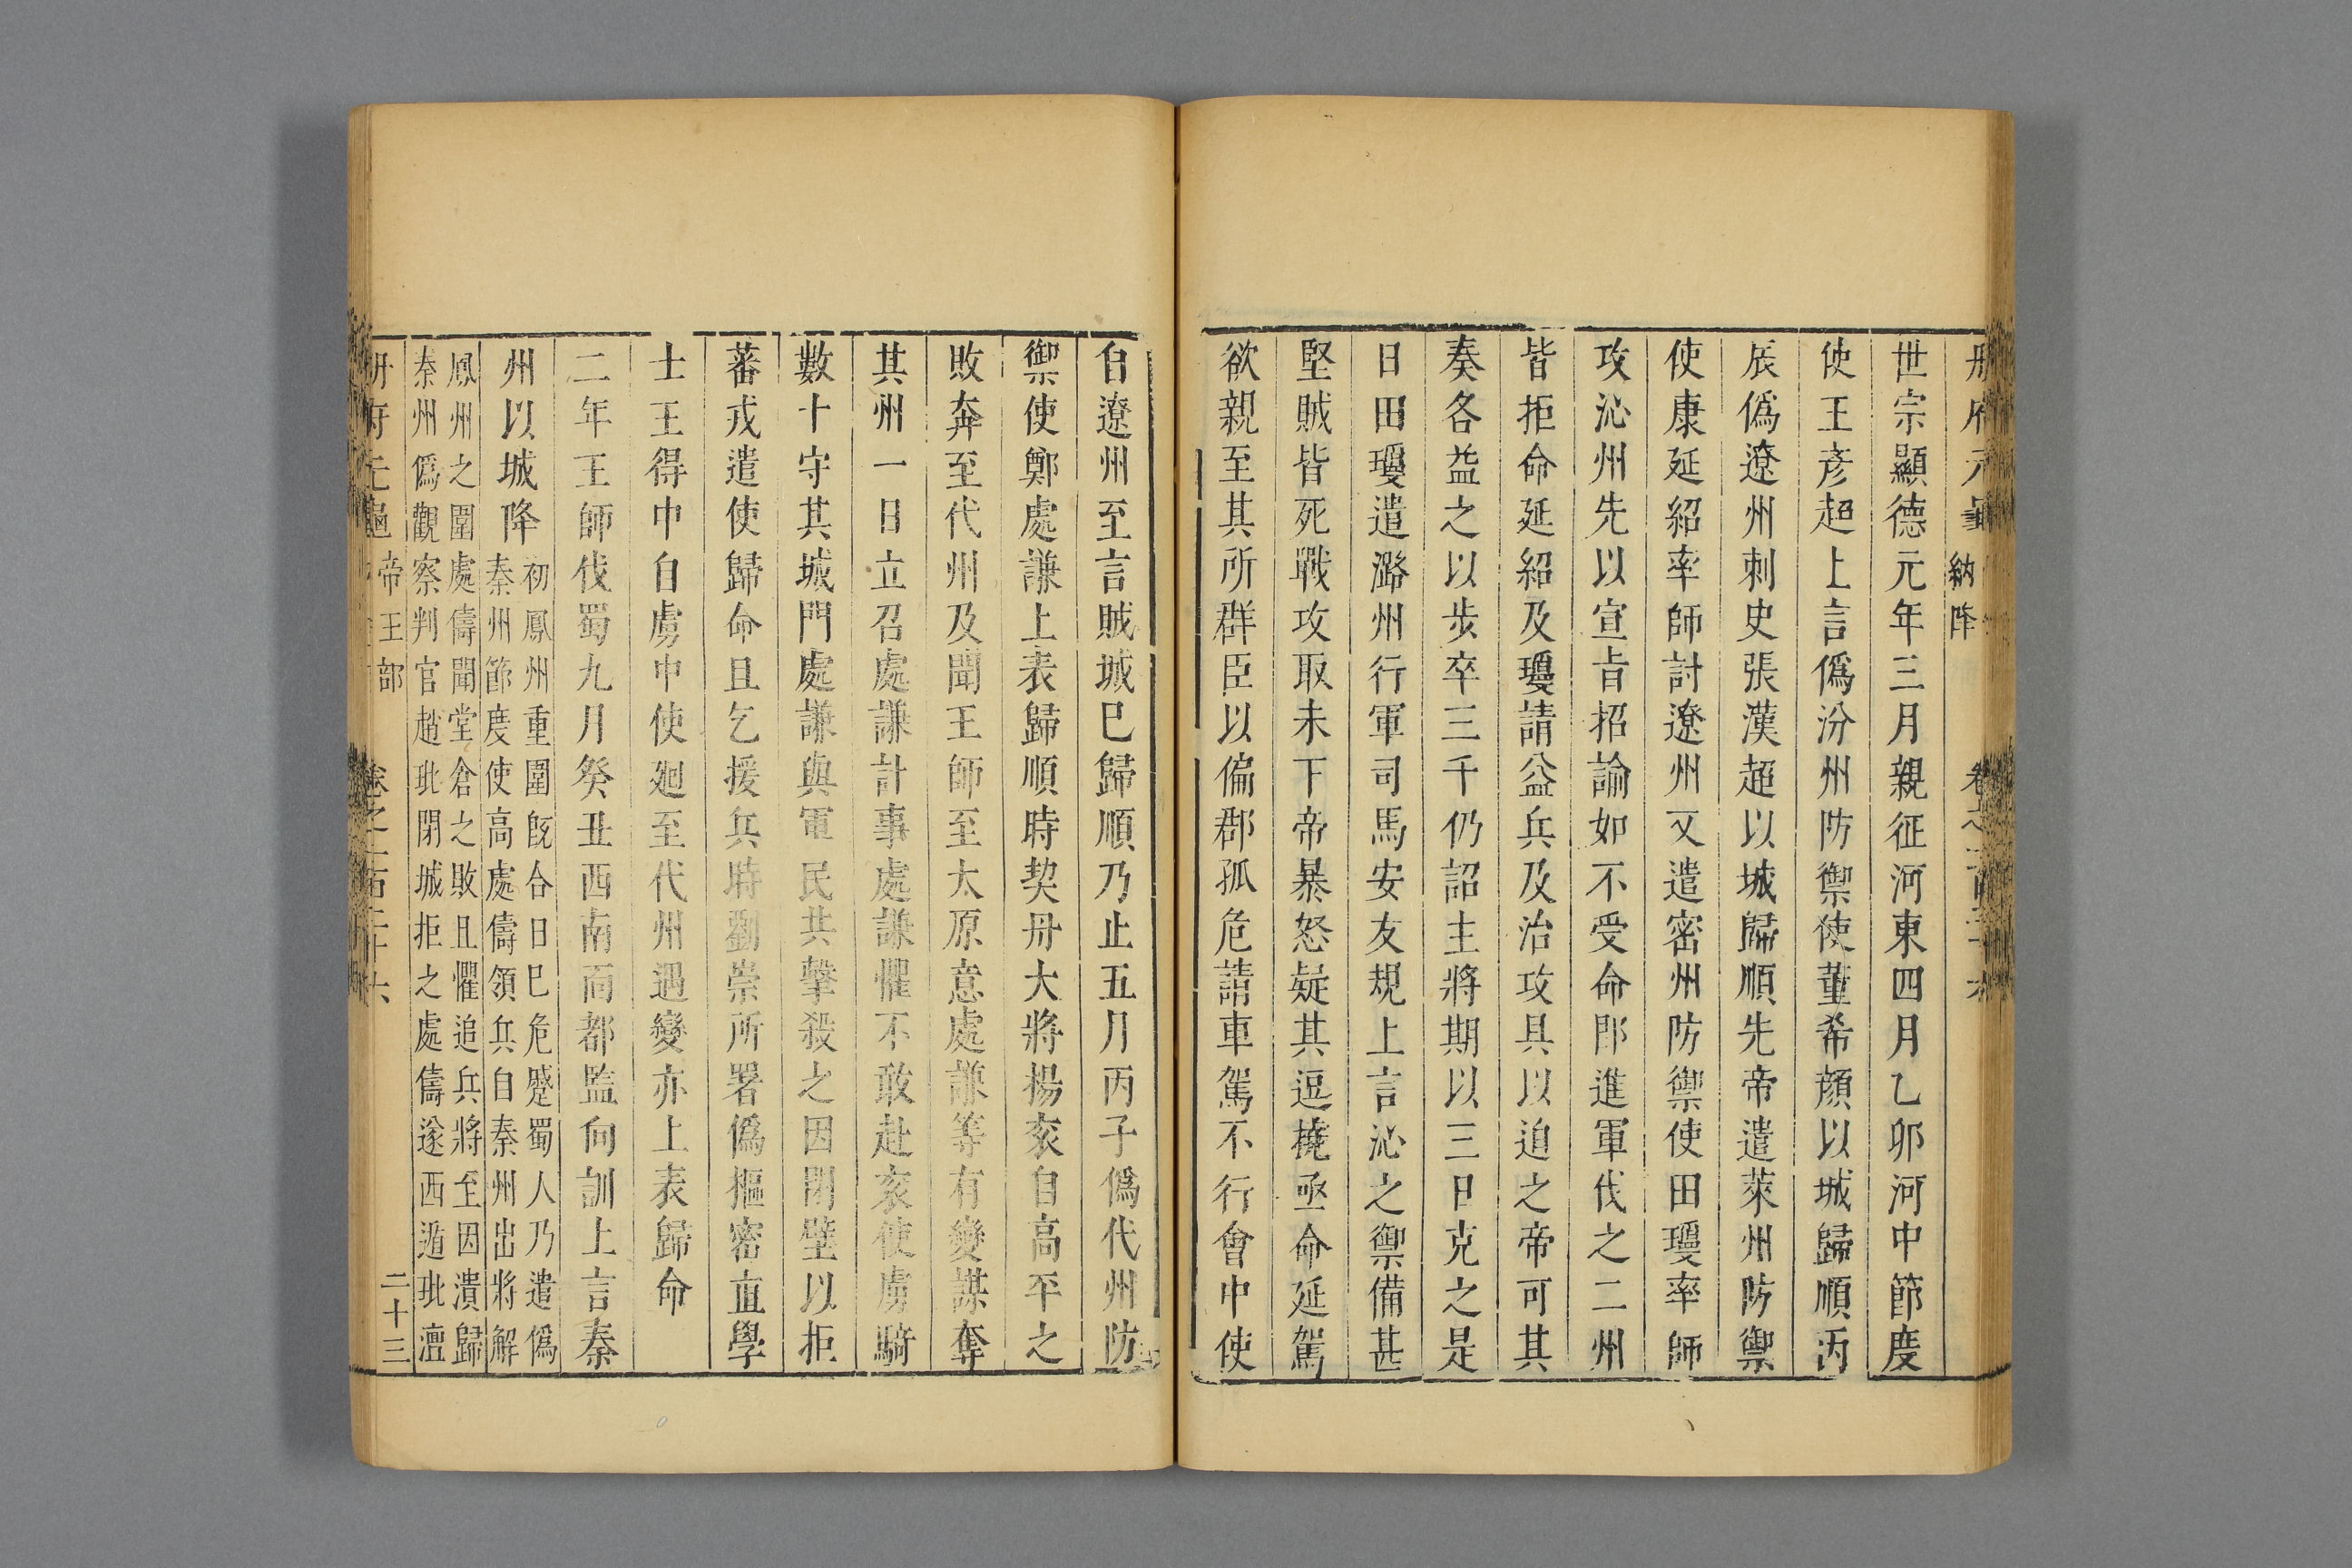 冊府元龜 納降 卷之一百二十六
世宗顯德元年三月親征河東四月乙卯河中節度
使王彥超上言僞汾州防禦使董希顏以城歸順丙
辰僞遼州刺史張漢超以城歸順先帝遣萊州防禦
使康延紹率師討遼州又遣密州防禦使田瓊率師
攻沁州先以宣旨招諭如不受命即進軍伐之二州
皆拒命延紹及瓊請益兵及治攻具以迫之帝可其
奏各益之以步卒三千仍詔主將期以三日克之是
日田瓊遣潞州行軍司馬安友規上言沁之禦備甚
堅賊皆死戰攻取未下帝暴怒疑其逗撓亟命延駕
欲親至其所群臣以偏郡孤危請車駕不行會中使
自遼州至言賊城巳歸順乃止五月丙子僞代州防
禦使鄭處謙上表歸順時契丹大將揚衮自高平之
敗奔至代州及聞王師至太原意處謙等有變謀奪
其州一日立召處謙計事處謙懼不敢赴衮使虜騎
數十守其城門處謙與軍民共擊殺之因閉壁以拒
蕃戎遣使歸命且乞援兵時劉崇所署僞樞密直學
士王得中自虜中使廻至代州遇變亦上表歸命
二年王師伐蜀九月癸丑西南面都監向訓上言秦
州以城降 初鳳州重圍既合日巳危蹙蜀人乃遣僞
秦州節度使高處儔領兵自秦州出將解
鳳州之圍處儔聞堂倉之敗且懼追兵將至因潰歸
秦州僞觀察判官趙玭閉城拒之處儔遂西遁玭澶
冊府元龜 帝王部 卷之一百二十六 二十三